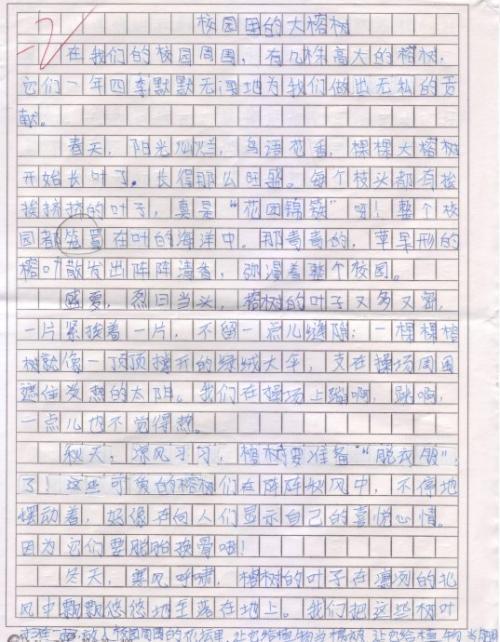 校园里的大榕树
在我们的校园周围，有几株高大的榕树，
它们一年四季默默无深地为我们做出无私的贡
献。
春天，阳光灿烂，鸟语花香，棵棵大榕树
开始长叶了。长得那么旺盛。每个枝头都有挨
挨挤挤的叶子，真是“花团锦簇”呀！整个校
园都笼罩在叶的海洋中。那青青的，草早形的
榕叶散发出阵阵清香，弥漫着整个校园。
盛夏，烈日当头，榕树的叶子又多又密，
一片紧挨着一片，不留一点儿缝隙；一棵棵榕
树就像一顶顶撑开的绿绒大伞，支在操场周围
遮住炎热的太阳。我们在操场上蹦啊，跳啊，
一点儿也不觉得热。
秋天，凉风习习，榕树要准备“脱衣服”
了！这些可爱的榕树们在阵阵秋风中，不停地
摆动着，好像在向人们显示自己的喜悦心情。
因为它们要脱胎换骨啦！
冬天，寒风呼啸，榕树的叶子在凛冽的北
风中飘飘悠悠地坠落在地上。我们把这些树叶